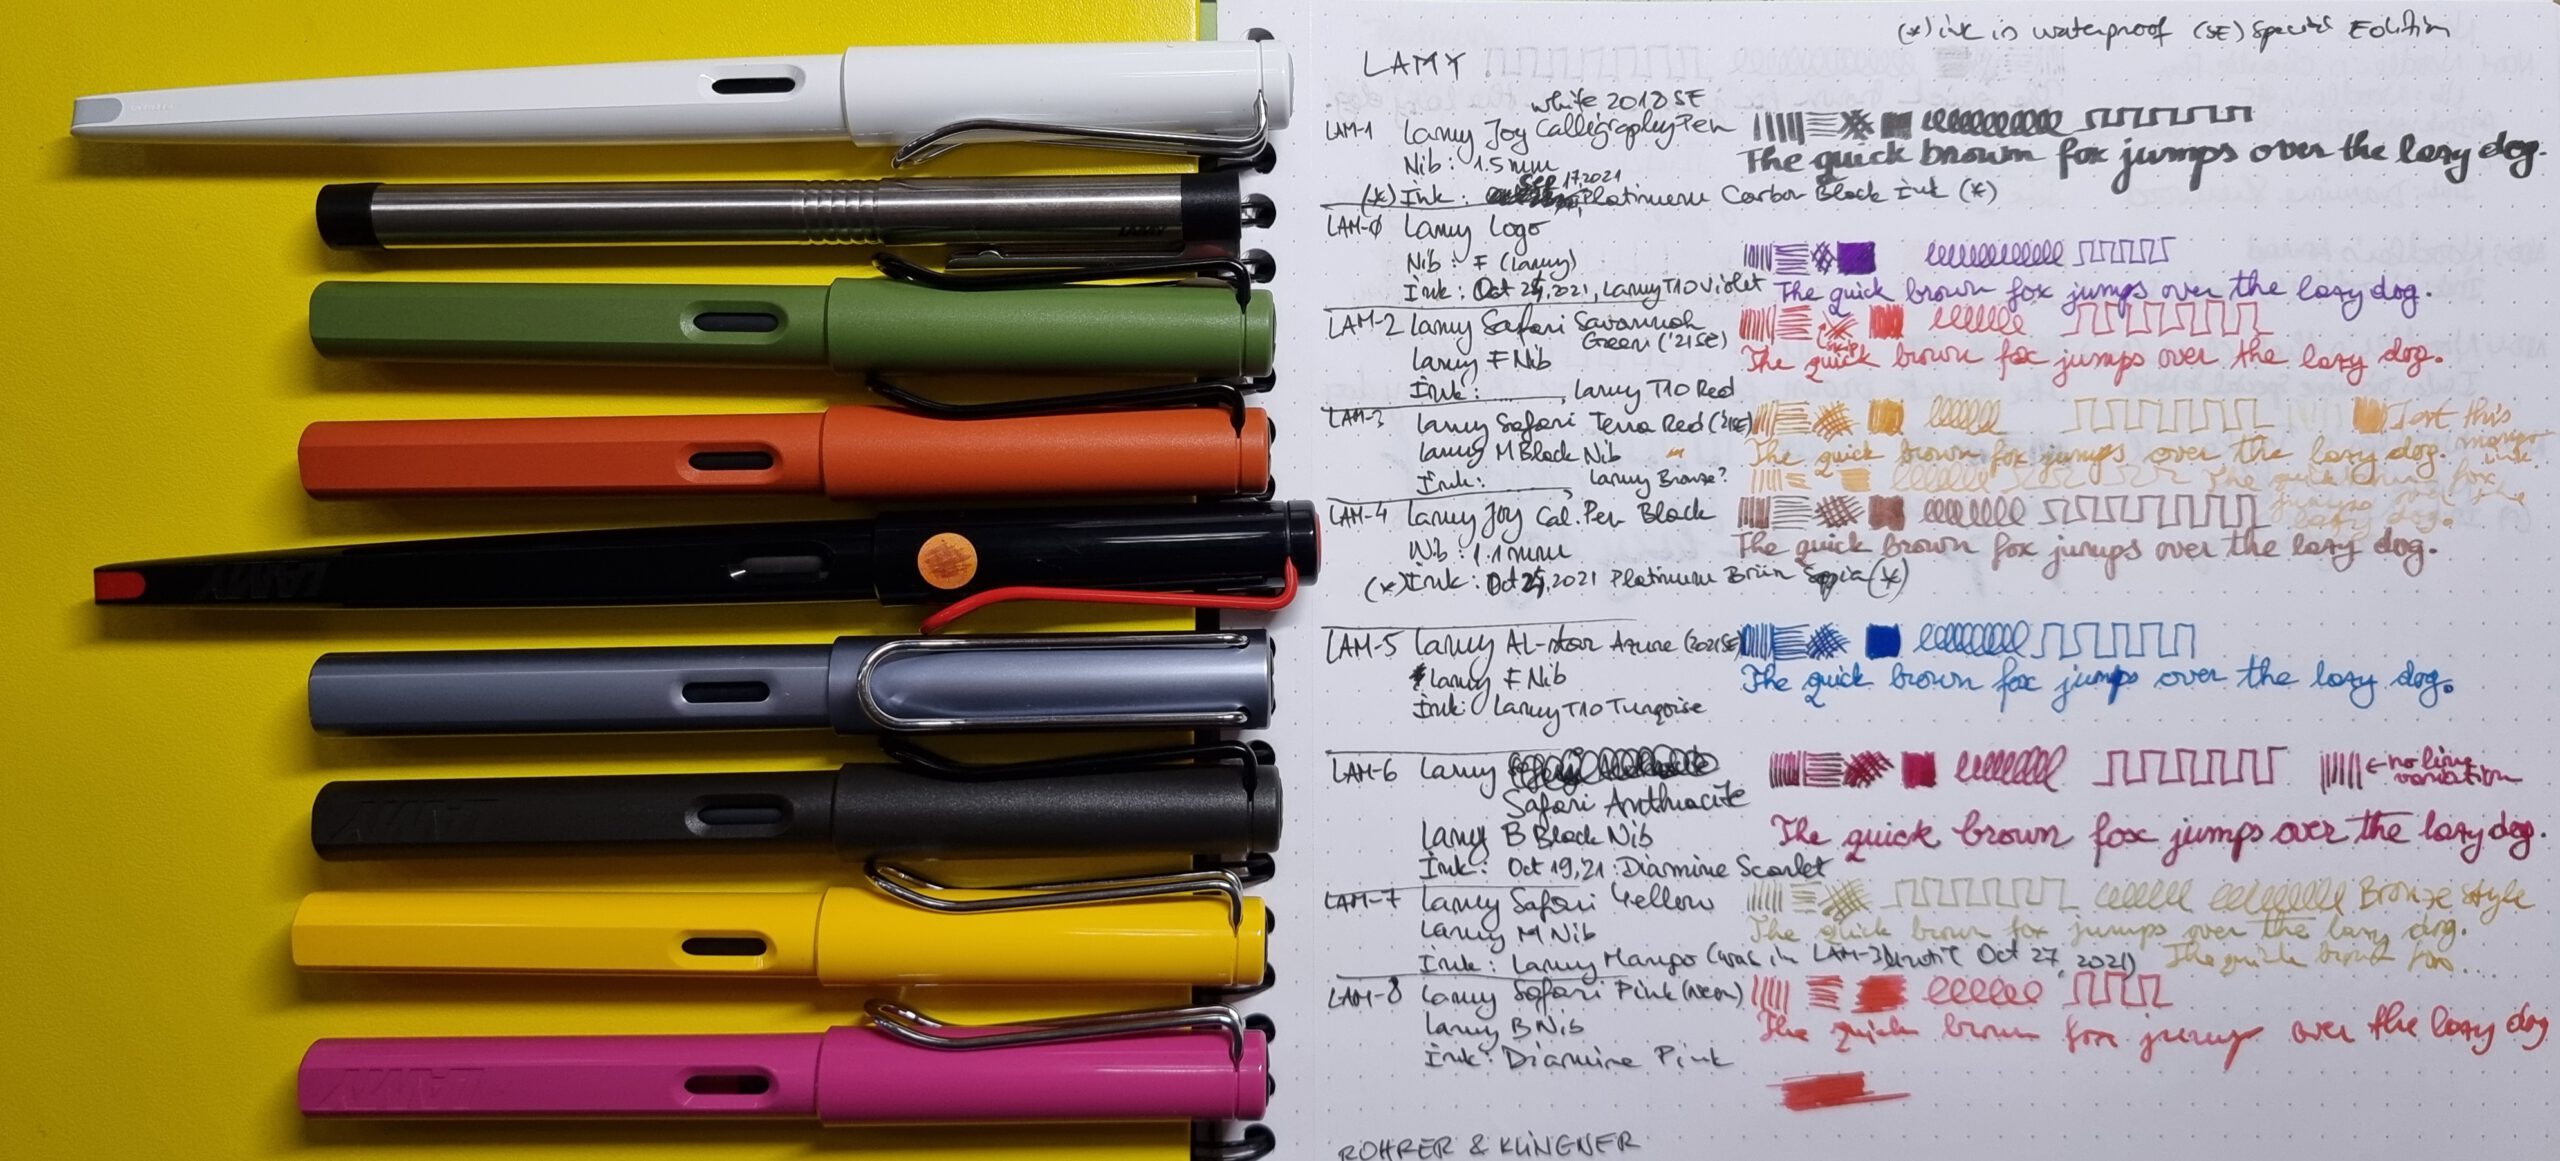 (*) ink is waterproof (SE) Special Edition
LAMY
white 2018 SE
LAM-1 Lamy Joy Calligraphy Pen
Nib: 1.5 mm
The quick brown fox jumps over the lazy dog.
Sep 17, 2021
(*) Ink: Platinum Carbon Black Ink (*)
LAM-0 Lamy Logo
Nib: F (Lamy)
Ink: Oct 25, 2021, Lamy T10 Violet
The quick brown fox jumps over the lazy dog.
LAM-2 Lamy Safari Savannah
Green ('21SE)
Lamy F Nib
Ink: ........, Lamy T10 Red
The quick brown fox jumps over the lazy dog.
LAM-3 Lamy Safari Terra Red ('21SE)
Lamy M Black Nib
Ink: , Lamy Bronze?
Test this
mango
ink.
The quick brown fox jumps over the lazy dog.
The quick brown fox
jumps over the
lazy dog.
LAM-4 Lamy Joy Cal. Pen Black
Nib: 1.1 mm
(*) Ink: Oct 25, 2021 Platinum Brün Sepia (*)
The quick brown fox jumps over the lazy dog.
LAM-5 Lamy AL-star Azure (2021SE)
Lamy F Nib
Ink: Lamy T10 Turqoise
The quick brown fox jumps over the lazy dog.
LAM-6 Lamy
Safari Anthracite
Lamy B Black Nib
Ink: Oct 19, 21 Diamine Scarlet
← no line
variation
The quick brown fox jumps over the lazy dog.
LAM-7 Lamy Safari Yellow
Lamy M Nib
Ink: Lamy Mango (was in LAM-3 until Oct 27, 2021)
Bronze style
The quick brown fox jumps over the lazy dog.
The quick brown fox...
LAM-8 Lamy Safari Pink (Neon)
Lamy B Nib
Ink: Diamine Pink
The quick brown fox jumps over the lazy dog
ROHRER & KLINGNER
LAMY
LAMY
LAMY
LAMY